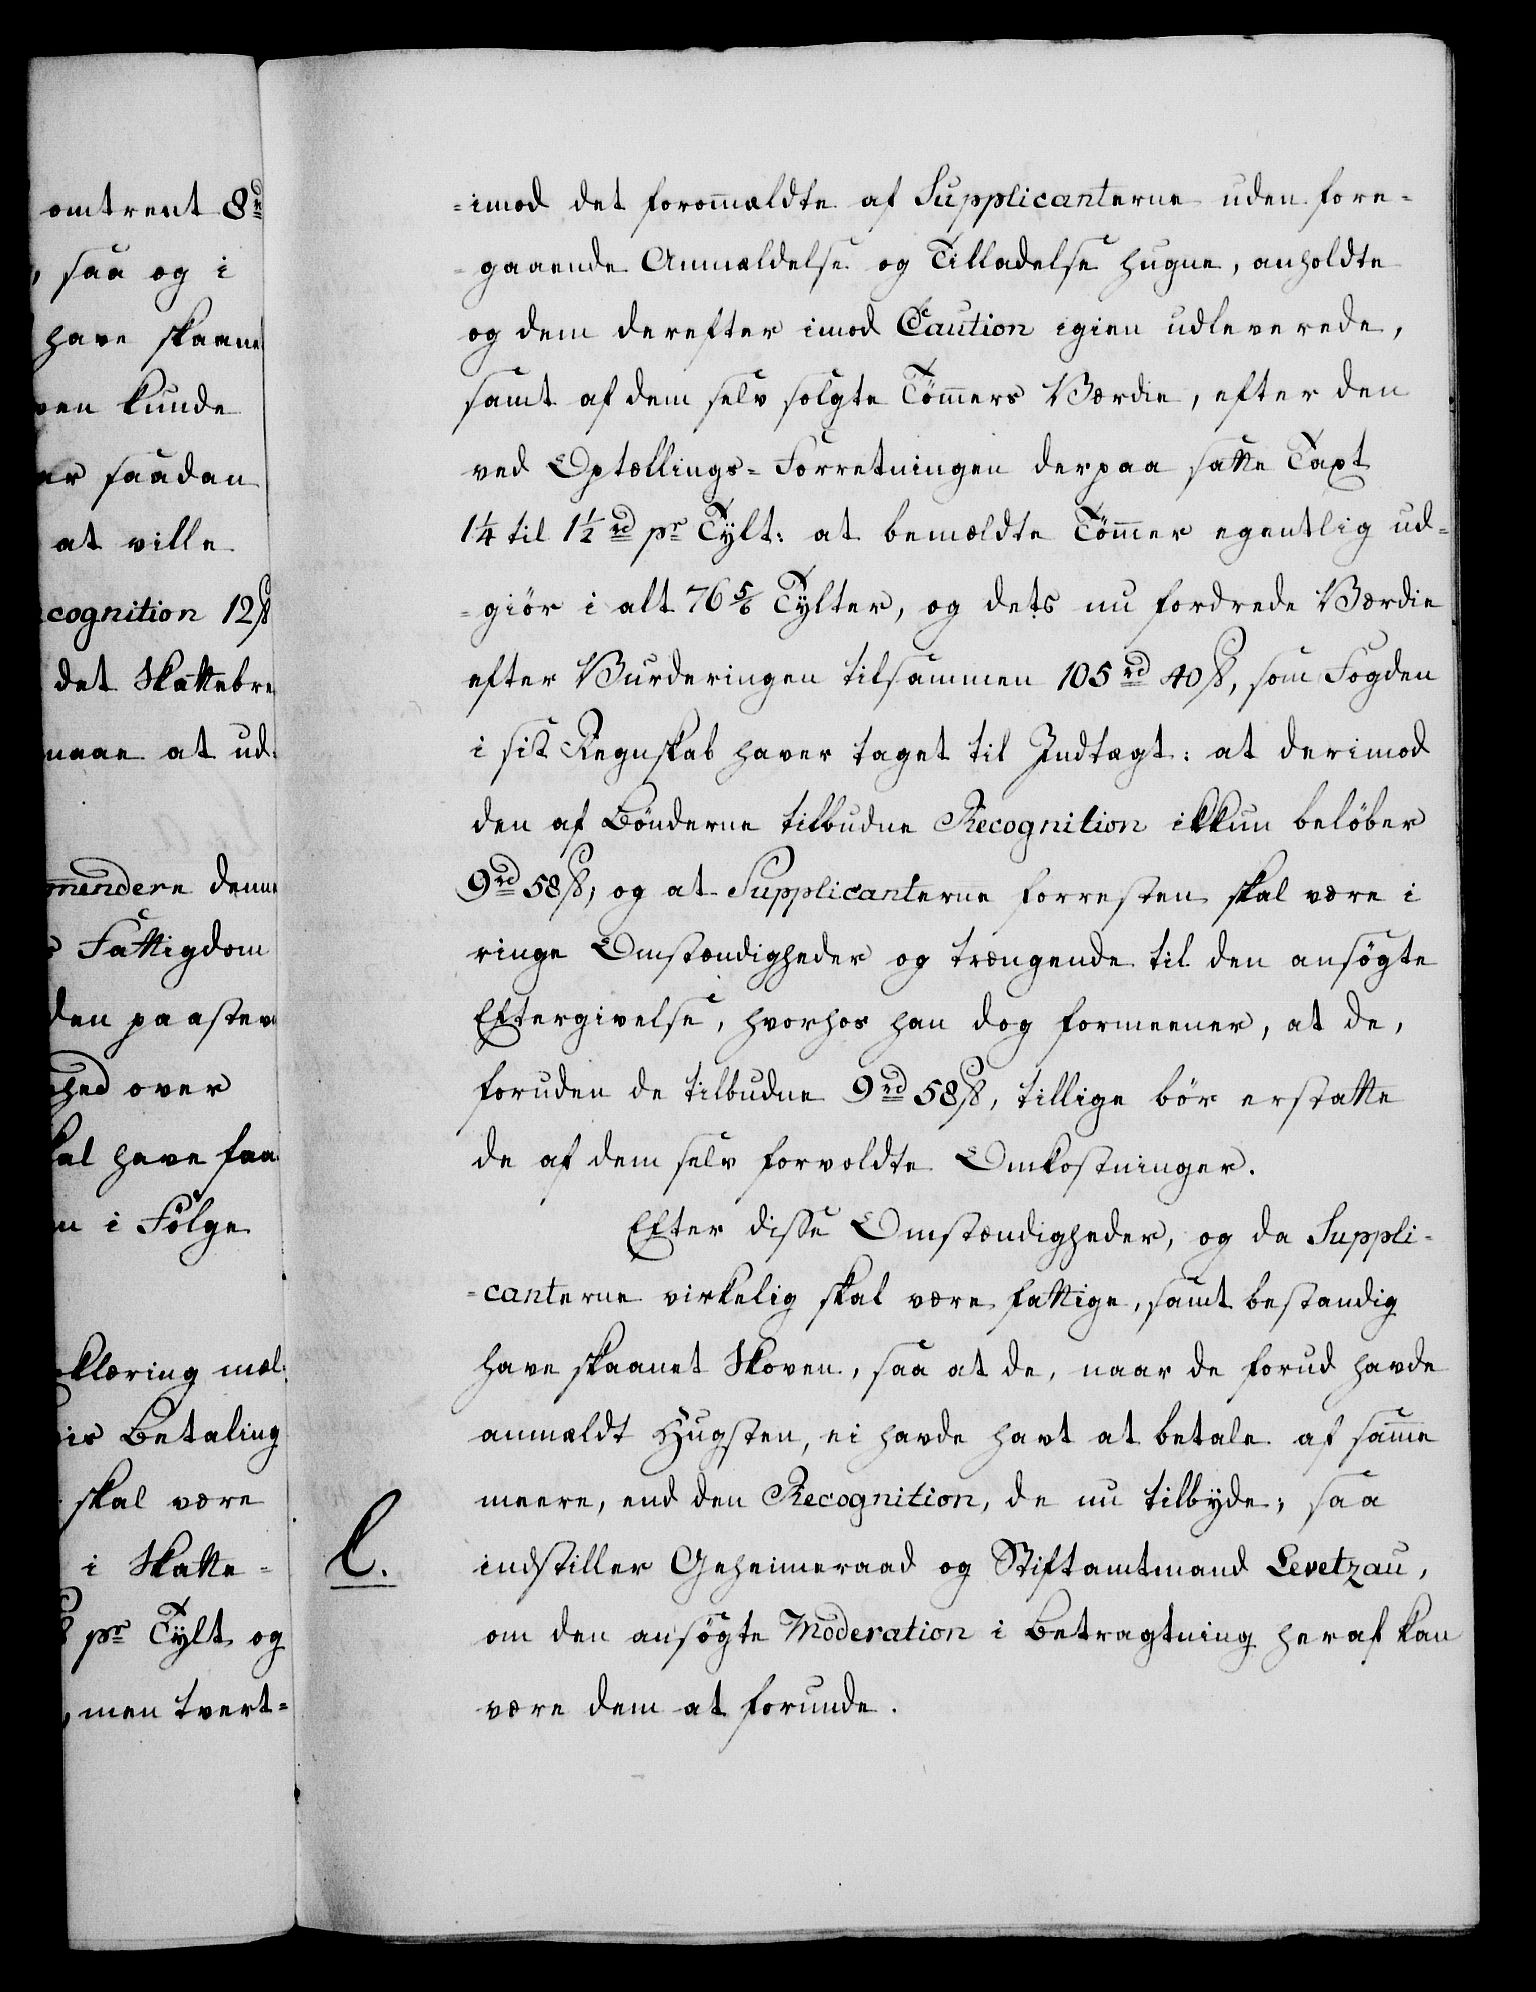 omtrent 8rd
, saa og i
have skaane
ven kunde
er saadan
at ville
cognition 12ß
det Skattebre
maae at ud-
mmendere denne
s Fattigdom
den paastev
hed over
kal have faa
n i Fölge
klæring mel-
is Betaling
skal være
i Skatte-
ß pr Tylt og
, men tvert-
-imod det forommældte af Supplicanterne uden fore-
-gaaende Anmældelse og Tilladelse hugne, anholdte
og dem derefter imod Caution igien udleverede,
samt af dem selv solgte Tömmers Værdie, efter den
ved Optællings-Forretningen derpaa satte Taxt
1¼ til 1½ rd pr Tylt: at bemældte Tömmer egentlig ud-
-giör i alt 76 5/6 Tylter, og dets nu fordrede Værdie
efter Vurderingen tilsammen 105 rd 40 ß, som Fogden
i sit Regnskab haver taget til Indtægt: at derimod
den af Bönderne tilbudne Recognition ikkun belöber
9 rd 58 ß; og at Supplicanterne forresten skal være i
ringe Omstændigheder og trængende til den ansögte
Eftergivelse, hvorhos han dog formeener, at de,
foruden de tilbudne 9 rd 58 ß, tillige bör erstatte
de af dem selv forvoldte Omkostninger.
Efter disse Omstændigheder, og da Suppli-
-canterne virkelig skal være fattige, samt bestandig
have skaanet Skoven, saa at de, naar de forud havde
anmældt Hugsten, ei havde havt at betale af samme
meere, end den Recognition, de nu tilbyde; saa
l. indstiller Geheimeraad og Stiftamtmand Levetzau,
om den ansögte Moderation i Betragtning heraf kan
være dem at forunde.